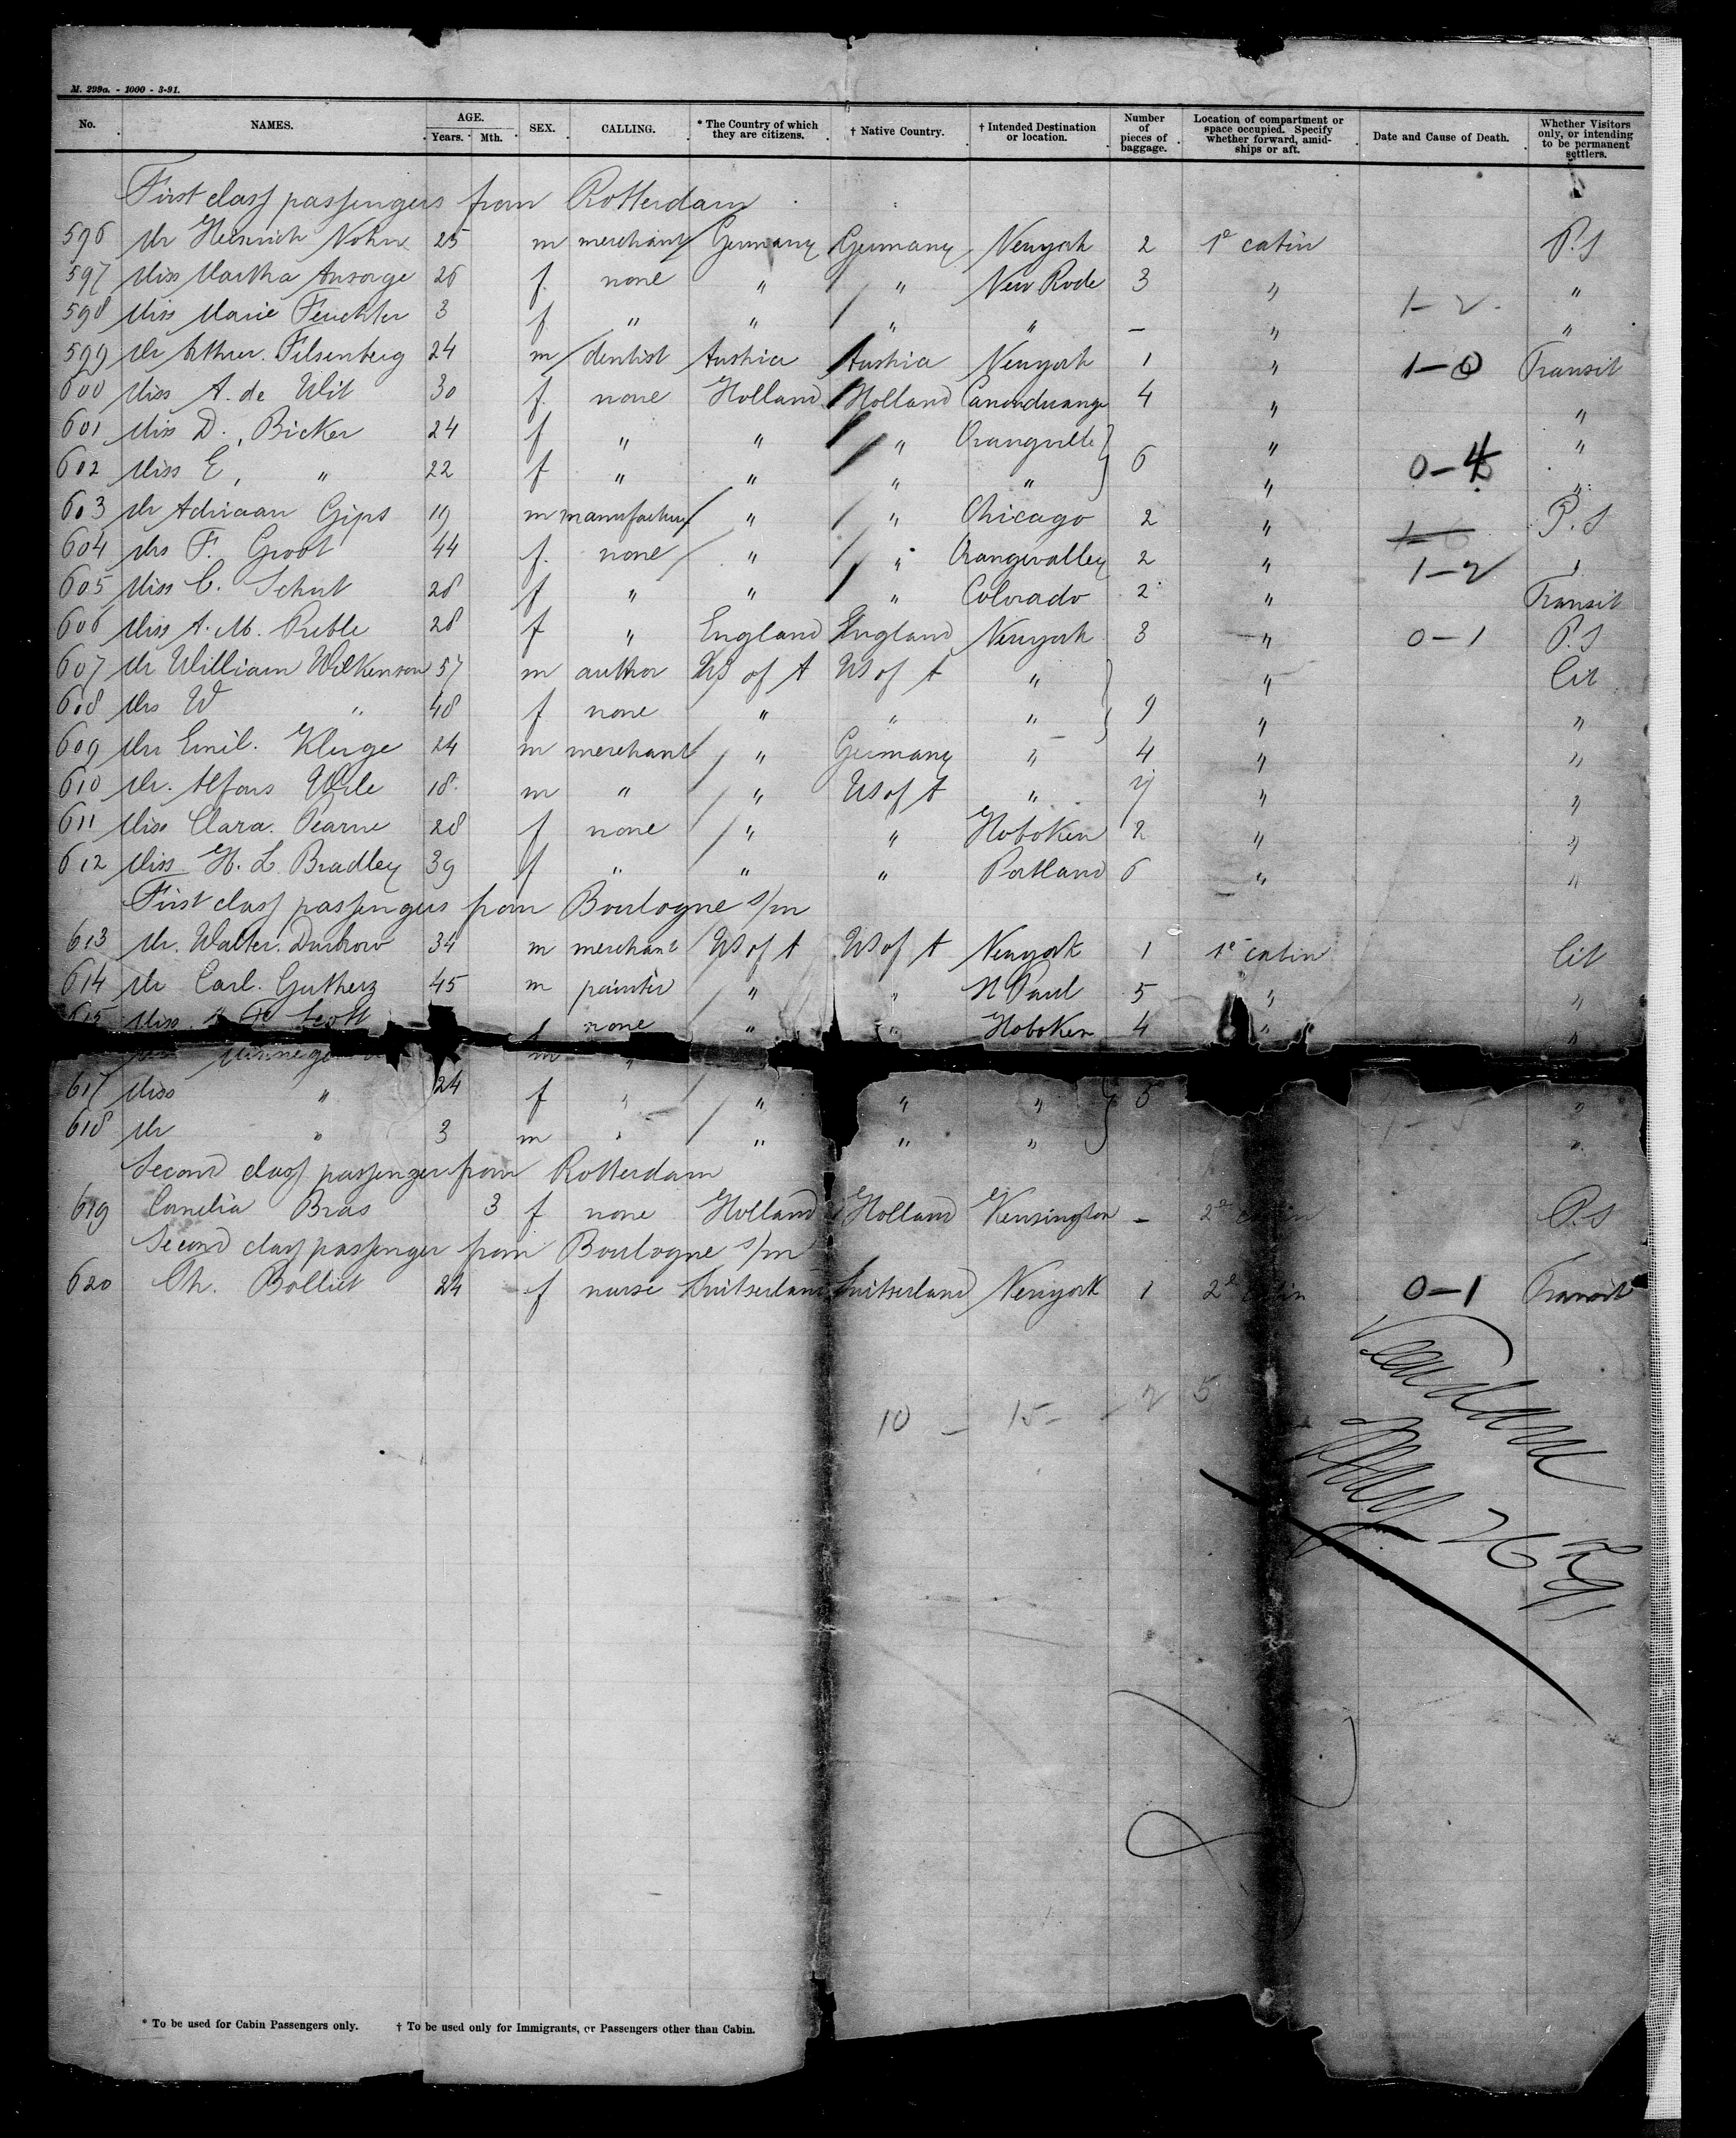 M. 299a. - 1000 - 3-91.
No. NAMES. AGE. Years. Mth. SEX. CALLING. * The Country of which they are citizens. † Native Country. † Intended Destination or location. Number of pieces of baggage. Location of compartment or space occupied. Specify whether forward, amidships or aft. Date and Cause of Death. Whether Visitors only, or intending to be permanent settlers.
First class passengers from Rotterdam
596 Mr Heinrich Nohn 25 m merchant Germany Germany Newyork 2 1e cabin P.S
597 Miss Martha Ansorge 26 f. none " " New Rode 3 " "
598 Miss Marie Feuchter 3 f. " " " " — " 1-2 "
599 Mr Arthur. Filsenberg 24 m dentist Austria Austria Newyork 1 " 1-0 Transit
600 Miss A. de Wit 30 f. none Holland Holland 4 " "
601 Miss D. Bicker 24 f " " " Orangeville 6 " "
602 Miss E, " 22 f " " " " " 0-4 "
603 Mr Adriaan Gips 19 m manufacturer " " Chicago 2 " P.S
604 Mrs F. Groot 44 f. none " " Orangevalley 2 " 1-2
605 Miss C. Schut 28 f " " " Colorado 2 " Transit
606 Miss A. M. Preble 28 f " England England Newyork 3 " 0-1 P.S
607 Mr William Wilkenson 57 m author US of A US of A " " Cit
608 Mrs W " 48 f none " " " 9 " "
609 Mr Emil. Kluge 24 m merchant " Germany " 4 " "
610 Mr. Alfons Wile 18. m " " US of A " " "
611 Miss Clara. Pearne 28 f none " " Hoboken 2 " "
612 Miss H. L. Bradley 39 f " " " Portland 6 " "
First class passengers from Boulogne s/m
613 Mr. Walter. Durbrow 34 m merchant US of A US of A Newyork 1 1e cabin Cit
614 Mr Carl. Gutherz 45 m painter " " St Paul 5 " "
615 Miss Scott f none " " Hoboken 4 " "
m "
617 Miss " 24 f " " " " 5 "
618 Mr " 3 m " " " " "
Second class passenger from Rotterdam
619 Cornelia Bras 3 f none Holland Holland Kensington — 2e cabin P.S
Second class passenger from Boulogne s/m
620 Ch. Bolliet 24 f nurse Switserland Switserland Newyork 1 2e cabin 0-1 Transit
Veendam
10 — 15 — 25
May 26 91
* To be used for Cabin Passengers only. † To be used only for Immigrants, or Passengers other than Cabin.